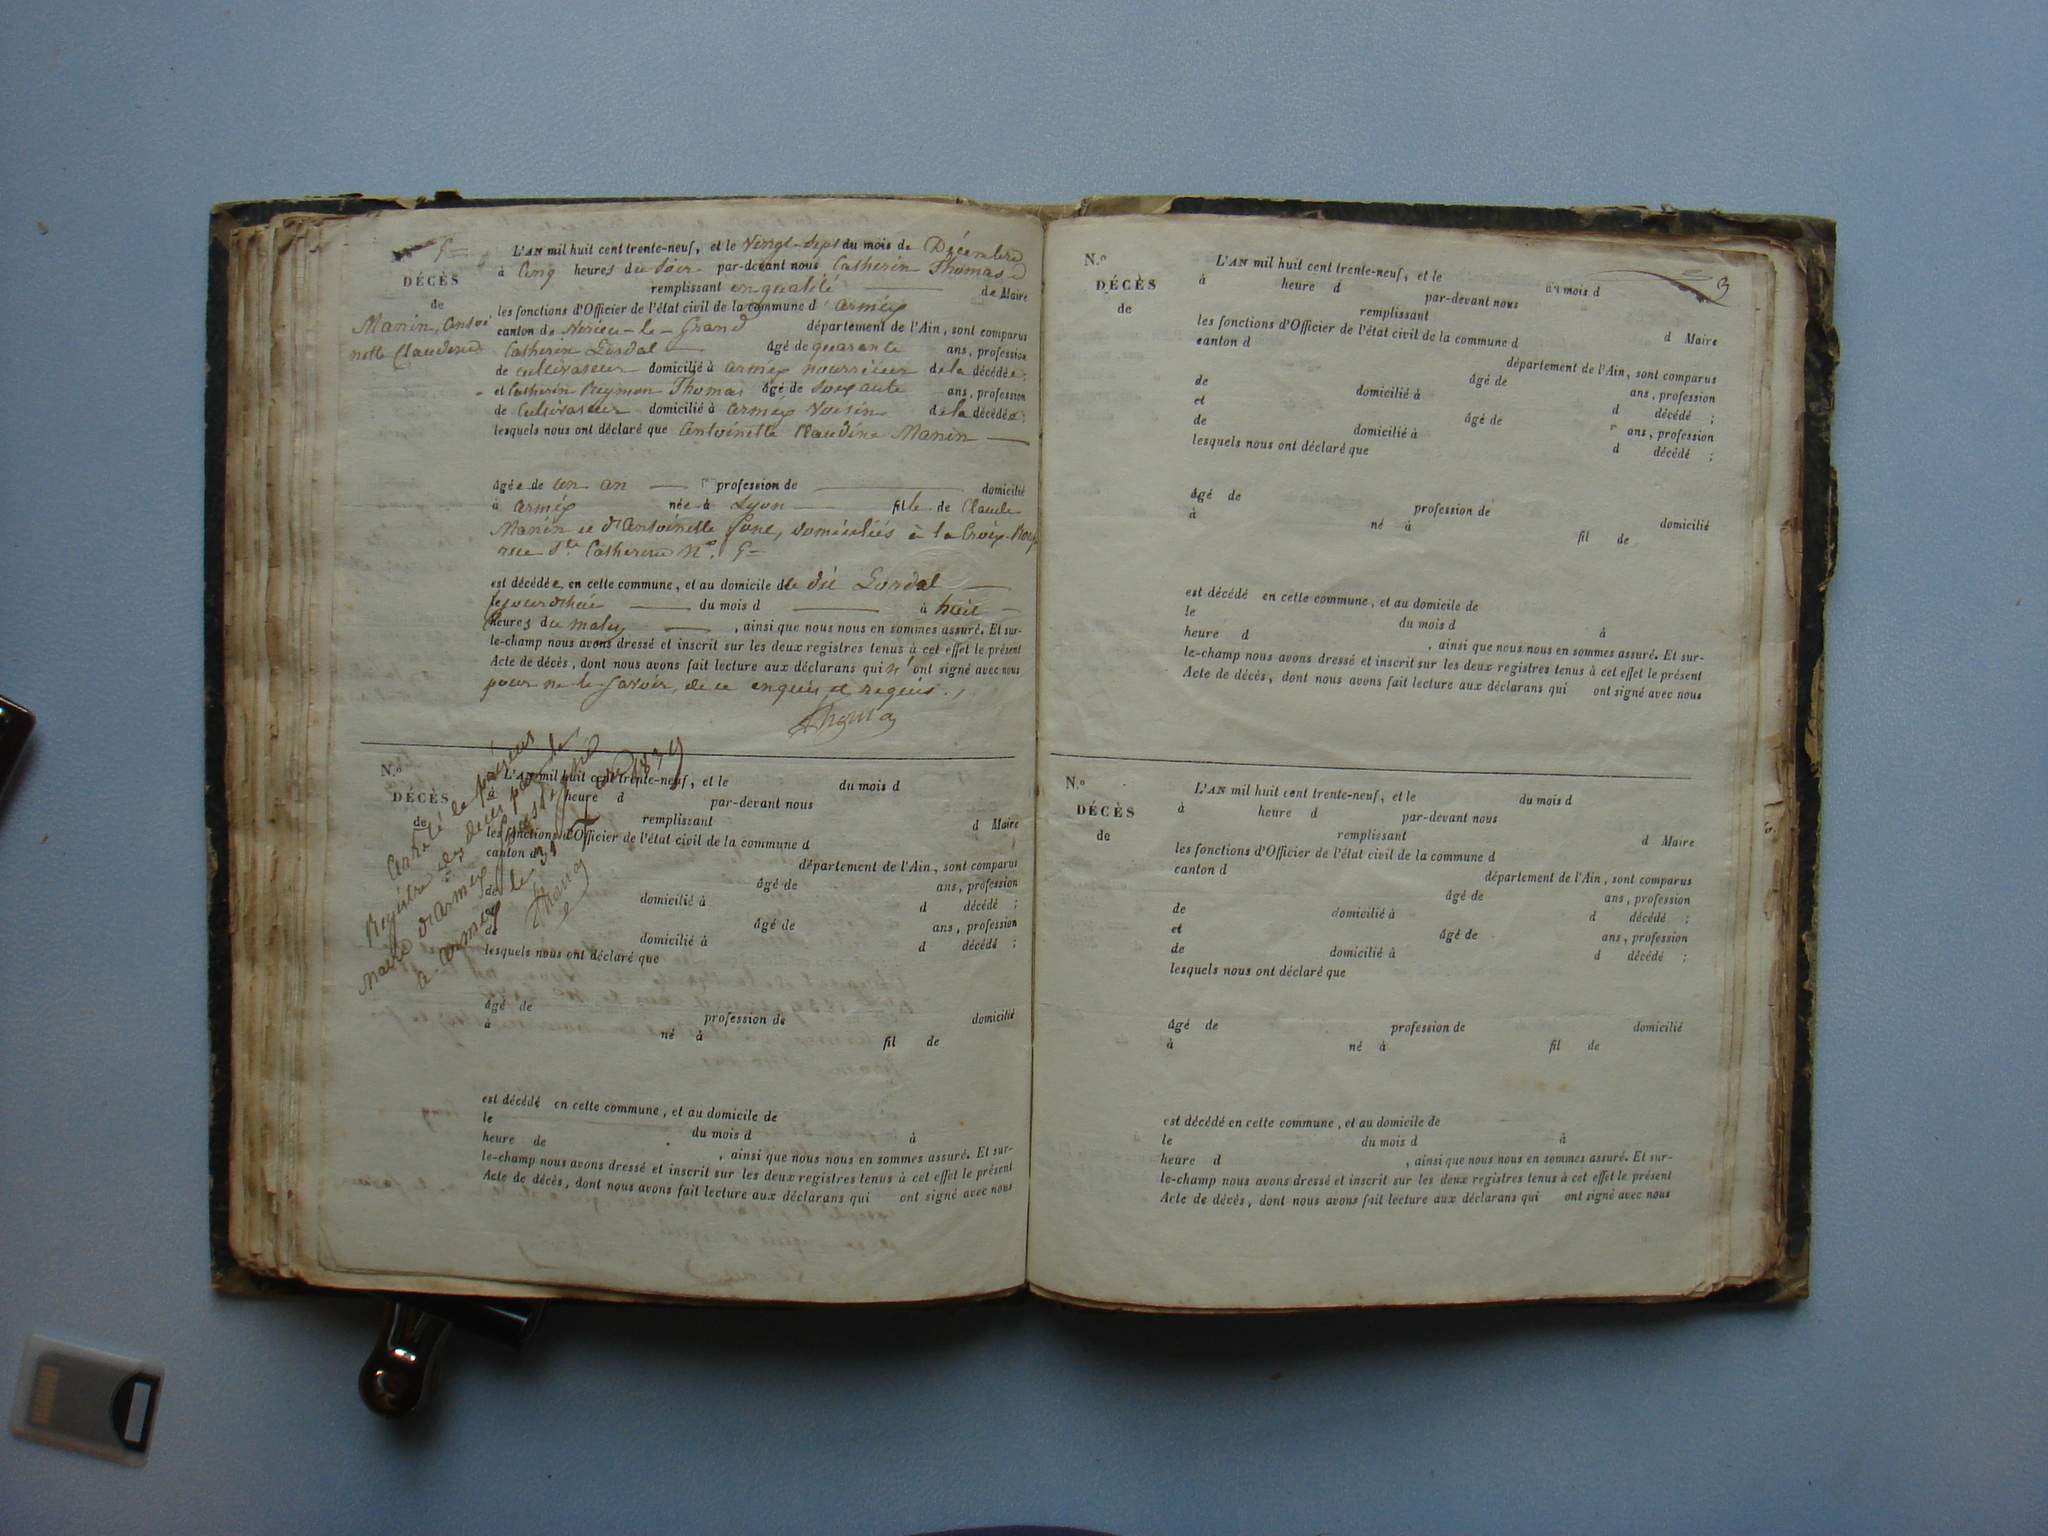 N.o 5=
DÉCÈS
de
Manin, Antoi
nette Claudine
L'AN mil huit cent trente-neuf, et le Vingt-Sept du mois de Décembre
à Cinq heures du Soir par-devant nous Catherin Thomas
remplissant en qualité de Maire
les fonctions d'Officier de l'état civil de la commune d'armix
canton de Virieu-le-Grand département de l'Ain, sont comparus
Catherin Lordal âgé de quarante ans, profession
de cultivateur domicilié à armix nourricier de la décédée;
et Catherin Reymon Thomas âgé de Soixante ans, profession
de Cultivateur domicilié à armix Voisin de la décédée;
lesquels nous ont déclaré que Antoinette Claudine Manin
âgée de un an profession de domicilié
à armix née à Lyon fille de Claude
Manin et d'Antoinette domiciliés à la Croix-Rouss
rue Ste Catherine No. 5=
est décédée en cette commune, et au domicile de dit Lordal
le jourdhui du mois d à huit
heures du matin, ainsi que nous nous en sommes assuré. Et sur-
le-champ nous avons dressé et inscrit sur les deux registres tenus à cet effet le présent
Acte de décès, dont nous avons fait lecture aux déclarans qui n'ont signé avec nous
pour ne le Savoir, de ce enquis et requis.
Thomas
Arrêté le présent
Régistre des décès par le
maire d'Armix
à armix le 31 1839
Thomas
N.o
DÉCÈS
de
L'AN mil huit cent trente-neuf, et le du mois d
à heure d par-devant nous
remplissant d Maire
les fonctions d'Officier de l'état civil de la commune d
canton d département de l'Ain, sont comparus
âgé de ans, profession
de domicilié à d décédé ;
et âgé de ans, profession
de domicilié à d décédé ;
lesquels nous ont déclaré que
âgé de profession de domicilié
à né à fil de
est décédé en cette commune, et au domicile de
le du mois d à
heure de , ainsi que nous nous en sommes assuré. Et sur-
le-champ nous avons dressé et inscrit sur les deux registres tenus à cet effet le présent
Acte de décès, dont nous avons fait lecture aux déclarans qui ont signé avec nous
3
N.o
DÉCÈS
de
L'AN mil huit cent trente-neuf, et le du mois d
à heure d par-devant nous
remplissant d Maire
les fonctions d'Officier de l'état civil de la commune d
canton d département de l'Ain, sont comparus
âgé de ans, profession
de domicilié à d décédé ;
et âgé de ans, profession
de domicilié à d décédé ;
lesquels nous ont déclaré que
âgé de profession de domicilié
à né à fil de
est décédé en cette commune, et au domicile de
le du mois d à
heure d , ainsi que nous nous en sommes assuré. Et sur-
le-champ nous avons dressé et inscrit sur les deux registres tenus à cet effet le présent
Acte de décès, dont nous avons fait lecture aux déclarans qui ont signé avec nous
N.o
DÉCÈS
de
L'AN mil huit cent trente-neuf, et le du mois d
à heure d par-devant nous
remplissant d Maire
les fonctions d'Officier de l'état civil de la commune d
canton d département de l'Ain, sont comparus
âgé de ans, profession
de domicilié à d décédé ;
et âgé de ans, profession
de domicilié à d décédé ;
lesquels nous ont déclaré que
âgé de profession de domicilié
à né à fil de
est décédé en cette commune, et au domicile de
le du mois d à
heure d , ainsi que nous nous en sommes assuré. Et sur-
le-champ nous avons dressé et inscrit sur les deux registres tenus à cet effet le présent
Acte de décès, dont nous avons fait lecture aux déclarans qui ont signé avec nous